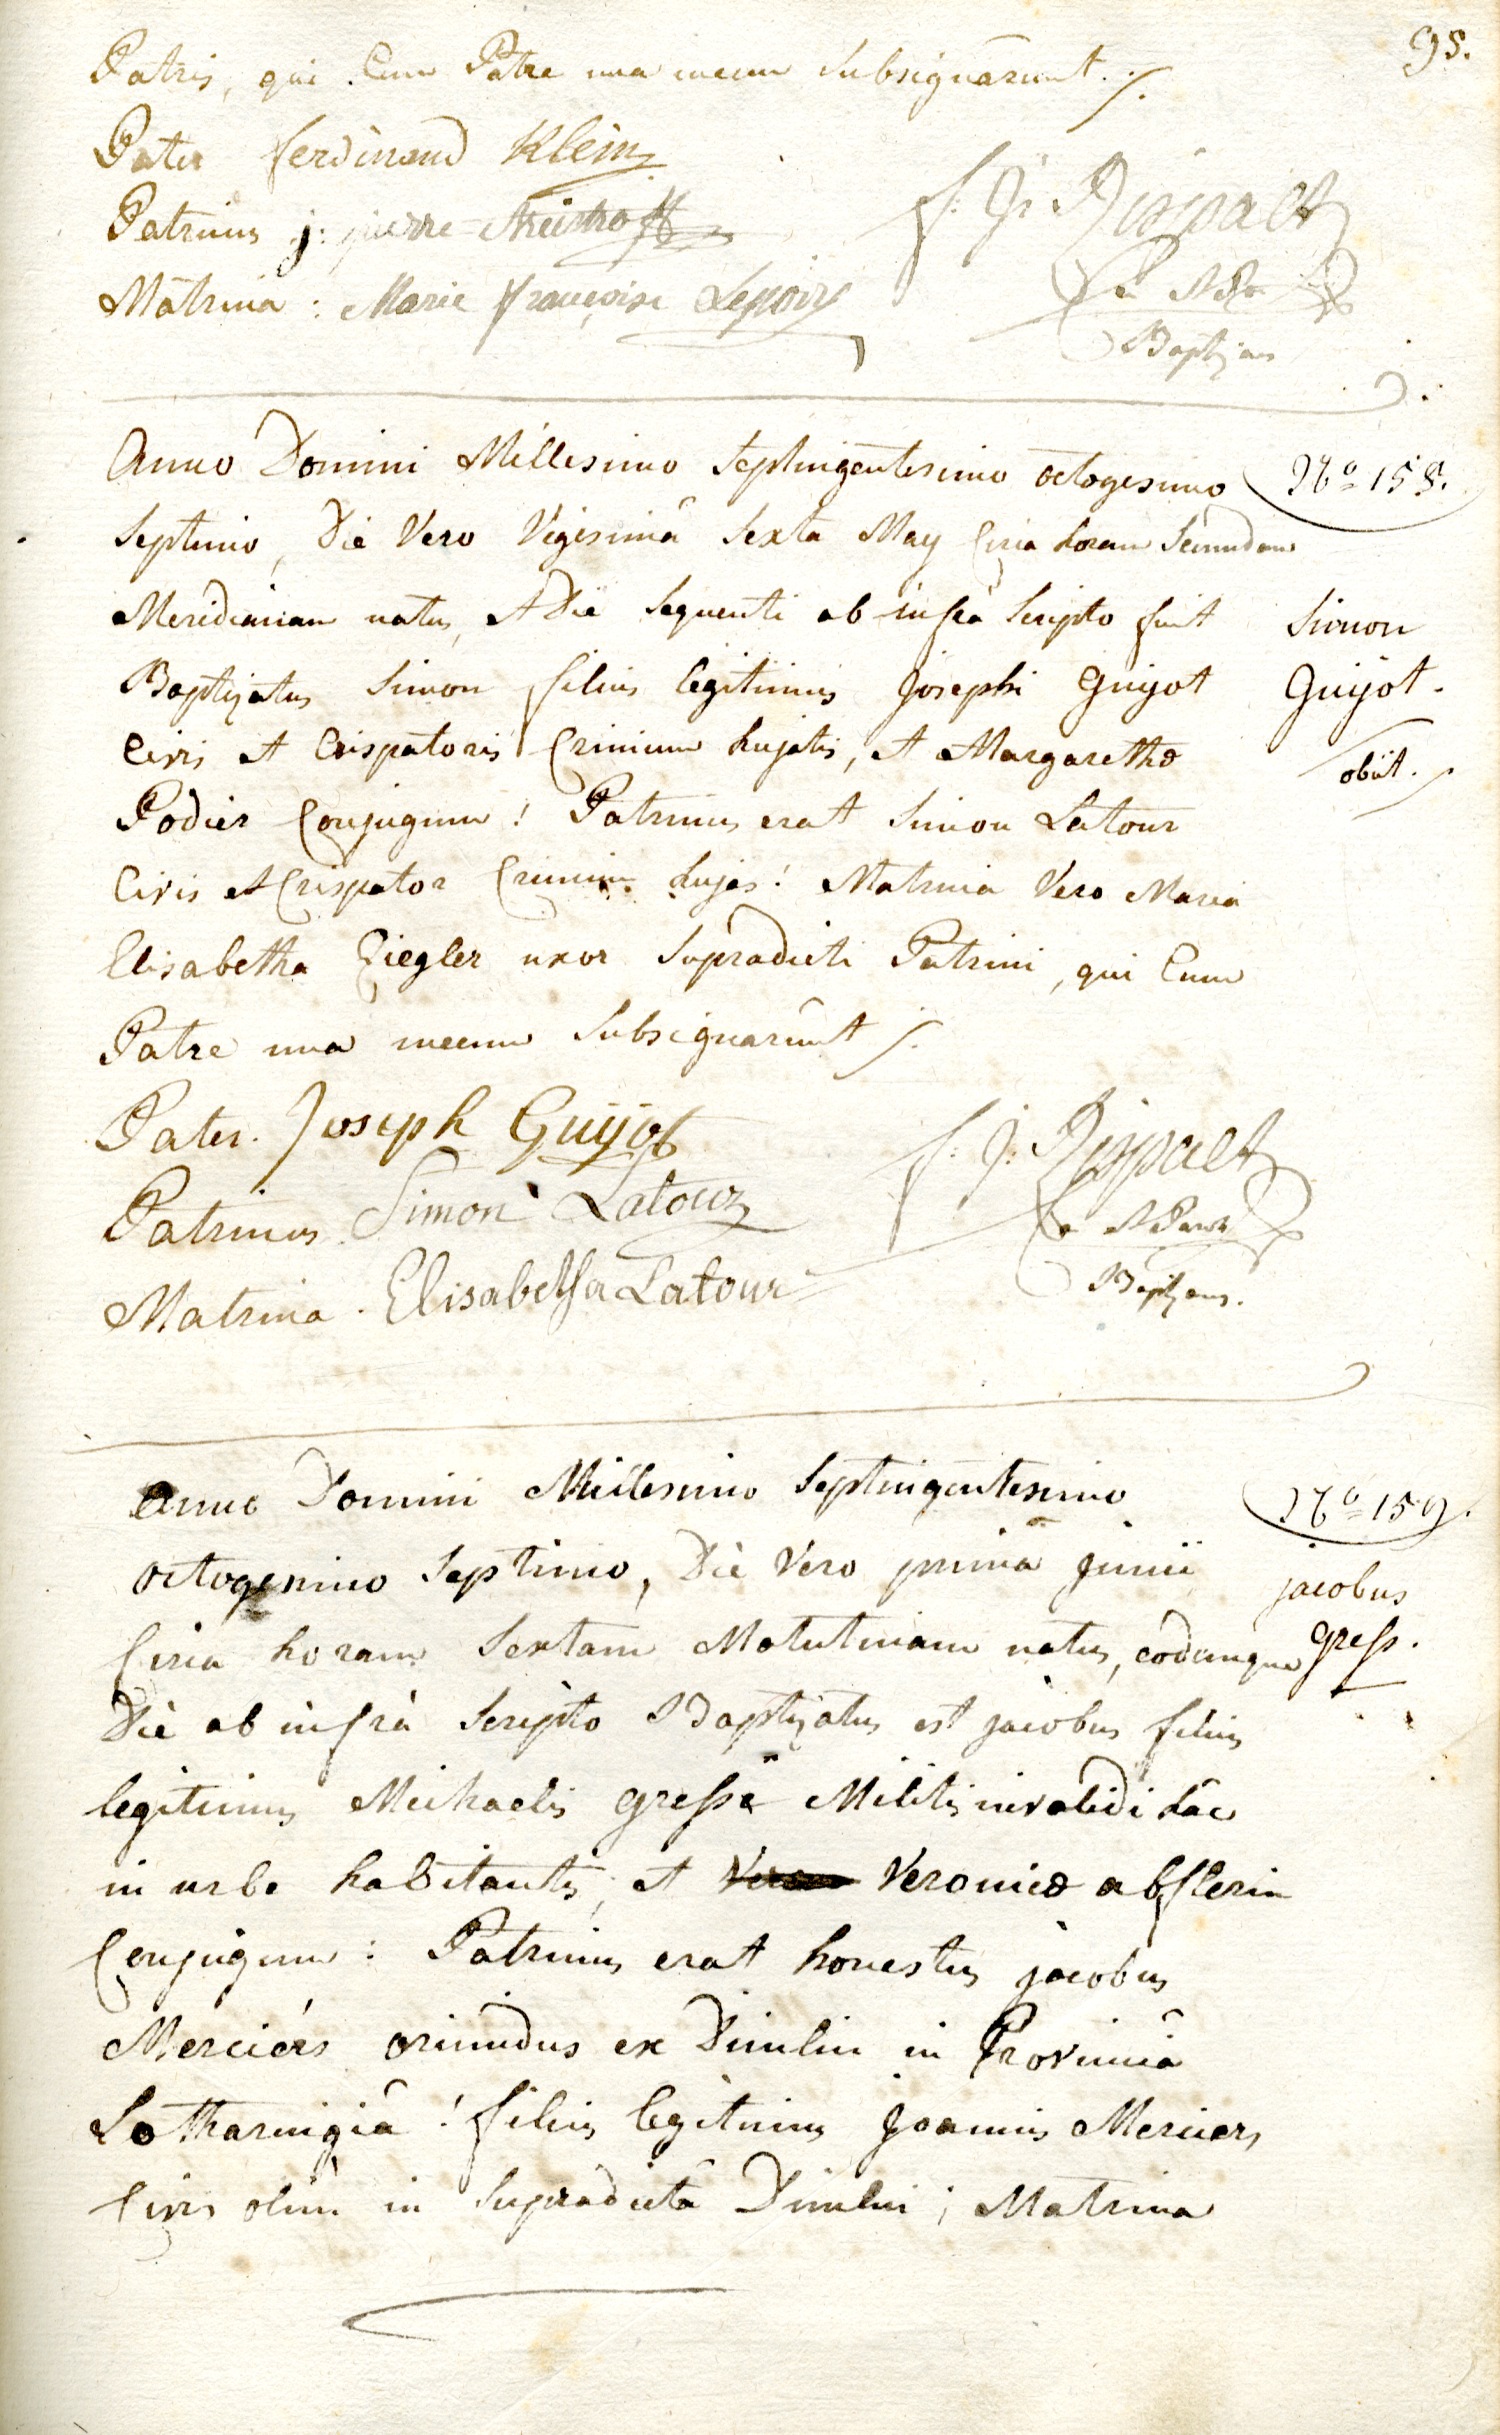 95.
Patris, qui Cum Patre una mecum Subsignarunt ./.
Pater ferdinand Klein
Patrinus j: pierre
Matrina : Marie françoise Lejoinz
Baptizans
Anno Domini Millesimo Septingentesimo octogesimo
Nº 158.
Septimo, Die Vero Vigesimâ Sexta May Circa horam Secundam
Meridianam natus, et Die Sequenti ab infrà Scripto fuit
Simon
Baptizatus Simon filius legitimus Josephi Guijot
Guijot.
Civis et Crispatoris Crinium hujatis, et Margarethæ
obiit.
Podier Conjugum ! Patrinus erat Simon Latour
Civis et Crispator Crinium hujas ! Matrina Vero Maria
Elisabetha Ziegler uxor Supradicti Patrini, qui Cum
Patre una mecum Subsignarunt ./.
Pater. Joseph Guijot
Patrinus Simon Latour
Matrina . Elisabetha Latour
Baptizans.
Anno Domini Millesimo Septingentesimo
Nº 159.
octogesimo Septimo, Die Vero prima Junii
jacobus
Circa horam Sextam Matutinam natus, eodemque
Gress.
Die ab infrà Scripto Baptizatus est jacobus filius
legitimus Michaelis Gress Militis invalidi hac
in urbe habitantis, et Veronicæ absflerin
Conjugum : Patrinus erat honestus jacobus
Merciers oriundus ex Dimlin in Provinciâ
Lotharingiâ ! filius legitimus Joannis Merciers
Civis olim in Supradictâ Dimlin ; Matrina